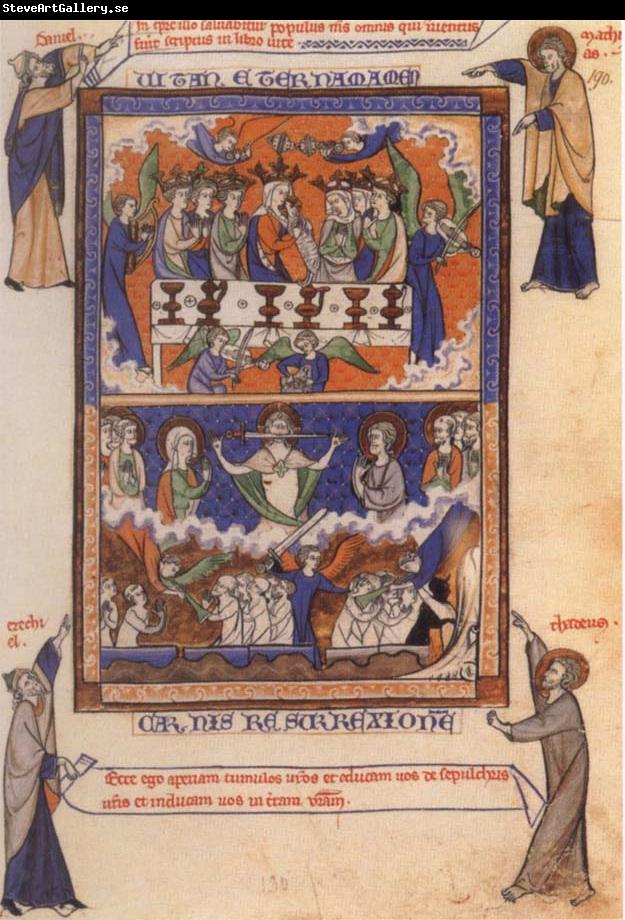 SteveArtGallery.se
In tpre illo saluabitur populus tuus omnis qui inuentus
fuerit scriptus in libro uite
Daniel.
Mathi
as.
190.
VITAM ETERNAM AMEN
ezechi
el.
thadeus.
CARNIS RESURREXIONE
Ecce ego aperiam tumulos uros et educam uos de sepulchris
uris et inducam uos in tram uram.
130